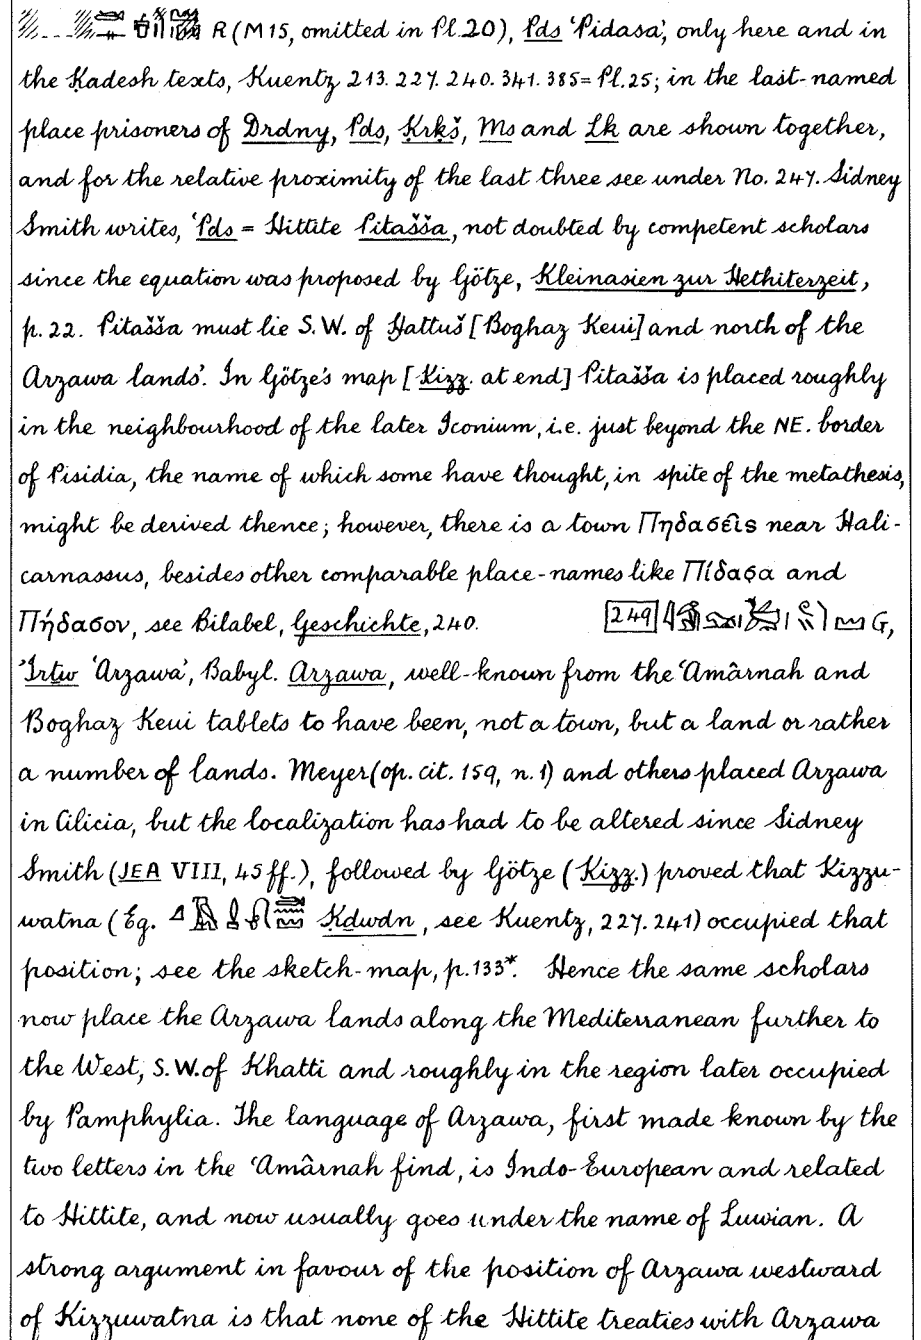 R (M15, omitted in Pl. 20), Pds ‘Pidasa’, only here and in
the Ḳadesh texts, Kuentz 213. 227. 240. 341. 385 = Pl. 25; in the last-named
place prisoners of Drdny, Pds, Ḳrḳš, Ms and Lk are shown together,
and for the relative proximity of the last three see under No. 247. Sidney
Smith writes, ‘Pds = Hittite Pitašša, not doubted by competent scholars
since the equation was proposed by Götze, Kleinasien zur Hethiterzeit,
p. 22. Pitašša must lie S.W. of Ḫattuš [Boghaz Keui] and north of the
Arzawa lands’. In Götze's map [Kizz. at end] Pitašša is placed roughly
in the neighbourhood of the later Iconium, i.e. just beyond the NE. border
of Pisidia, the name of which some have thought, in spite of the metathesis,
might be derived thence; however, there is a town Πηδασεῖς near Hali-
carnassus, besides other comparable place-names like Πίδασα and
Πήδασον, see Bilabel, Geschichte, 240. 249 G,
’Irtw ‘Arzawa’, Babyl. Arzawa, well-known from the ‘Amârnah and
Boghaz Keui tablets to have been, not a town, but a land or rather
a number of lands. Meyer (op. cit. 159, n. 1) and others placed Arzawa
in Cilicia, but the localization has had to be altered since Sidney
Smith (JEA VIII, 45 ff.), followed by Götze (Kizz.) proved that Kizzu-
watna (Eg. Ḳdwdn, see Kuentz, 227. 241) occupied that
position; see the sketch-map, p. 133*. Hence the same scholars
now place the Arzawa lands along the Mediterranean further to
the West, S.W. of Khatti and roughly in the region later occupied
by Pamphylia. The language of Arzawa, first made known by the
two letters in the ‘Amârnah find, is Indo-European and related
to Hittite, and now usually goes under the name of Luwian. A
strong argument in favour of the position of Arzawa westward
of Kizzuwatna is that none of the Hittite treaties with Arzawa